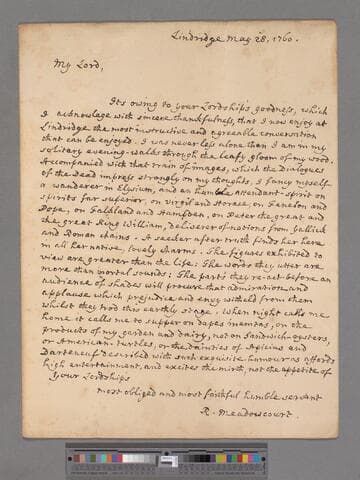 Lindridge May 28, 1760.
My Lord,
Its owing to your Lordship's goodness, which
I acknowlege with sincere thankfulness, that I now enjoy at
Lindridge the most instructive and agreeable conversation
that can be enjoyed. I was never less alone than I am in my
solitary evening-walks through the leafy gloom of my wood.
Accompanied with that train of images, which the Dialogues
of the Dead impress strongly on my thoughts, I fancy myself
a wanderer in Elysium, and an humble attendant-spirit on
spirits far superior, on Virgil and Horace, on Fenelon and
Pope, on Falkland and Hampden, on Peter the great and
the great King William, deliverer of nations from Gallick
and Roman chains. A seeker after truth finds her here
in all her native, lovely charms. The figures exhibited to
view are greater than the life: The words they utter are
more than mortal sounds: The parts they re-act before an
audience of shades will procure that admiration and
applause which prejudice and envy witheld from them
whilst they trod this earthly stage. When night calls me
home it calls me to supper on dapes inemtas, on the
products of my garden and dairy, not on Sandwich-oysters,
or American-turtles, or the dainties of Apicius and
Darteneuf described with such exquisite humour as affords
high entertainment, and excites the mirth not the appetite of
Your Lordships
most obliged and most faithful humble servant
R. Meadowcourt.